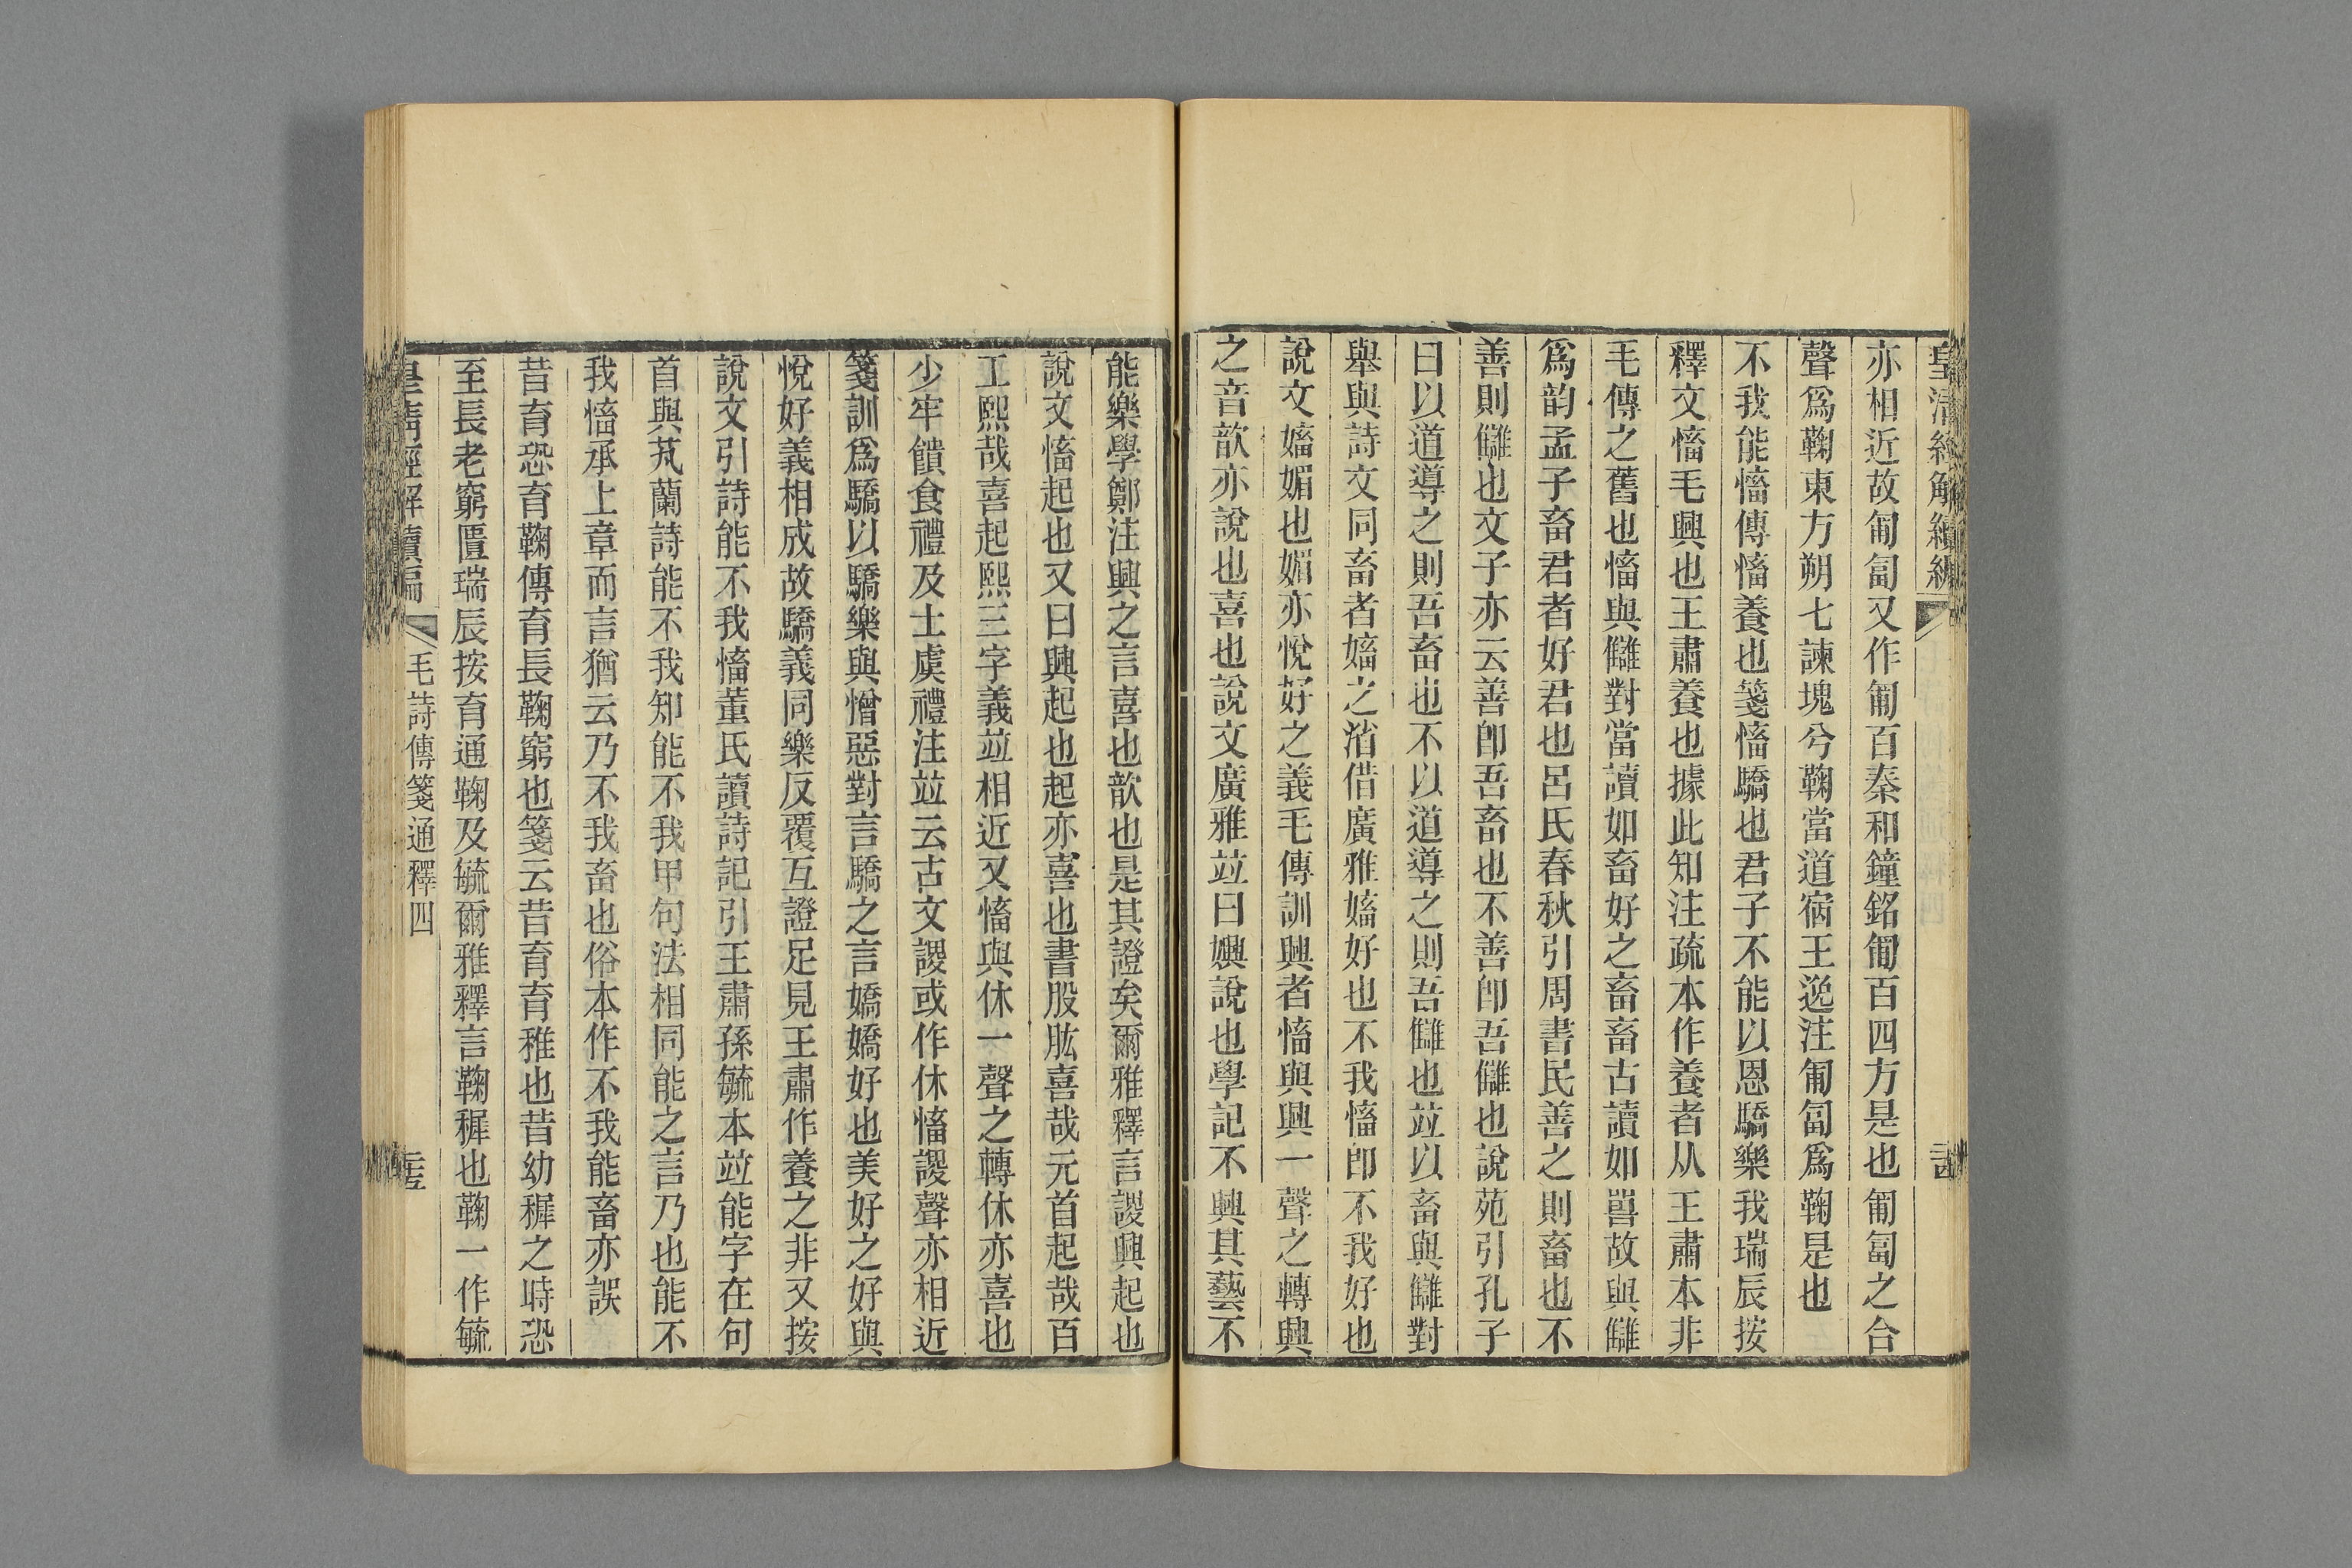 皇清經解續編
亦相近故匍匐又作匍百秦和鐘銘匍百四方是也匍匐之合
聲爲鞠東方朔七諫塊兮鞠當道宿王逸注匍匐爲鞠是也
不我能慉傳慉養也箋慉驕也君子不能以恩驕樂我瑞辰按
釋文慉毛興也王肅養也據此知注疏本作養者从王肅本非
毛傳之舊也慉與讎對當讀如畜好之畜畜古讀如嘼故與讎
爲韵孟子畜君者好君也呂氏春秋引周書民善之則畜也不
善則讎也文子亦云善卽吾畜也不善卽吾讎也說苑引孔子
曰以道導之則吾畜也不以道導之則吾讎也竝以畜與讎對
舉與詩文同畜者嬸之渻借廣雅嬸好也不我慉卽不我好也
說文嬸媚也媚亦悅好之義毛傳訓興者慉與興一聲之轉興
之音歆亦說也喜也說文廣雅竝曰嬹說也學記不興其藝不
能樂學鄭注興之言喜也歆也是其證矣爾雅釋言謖興起也
說文慉起也又曰興起也起亦喜也書股肱喜哉元首起哉百
工熙哉喜起熙三字義竝相近又慉與休一聲之轉休亦喜也
少牢饋食禮及士虞禮注竝云古文謖或作休慉謖聲亦相近
箋訓爲驕以驕樂與憎惡對言驕之言嬌嬌好也美好之好與
悅好義相成故驕義同樂反覆互證足見王肅作養之非又按
說文引詩能不我慉董氏讀詩記引王肅孫毓本竝能字在句
首與芄蘭詩能不我知能不我甲句法相同能之言乃也能不
我慉承上章而言猶云乃不我畜也俗本作不我能畜亦誤
昔育恐育鞠傳育長鞠窮也箋云昔育育稚也昔幼穉之時恐
至長老窮匱瑞辰按育通鞠及毓爾雅釋言鞠穉也鞠一作毓
皇清經解續編 毛詩傳箋通釋四